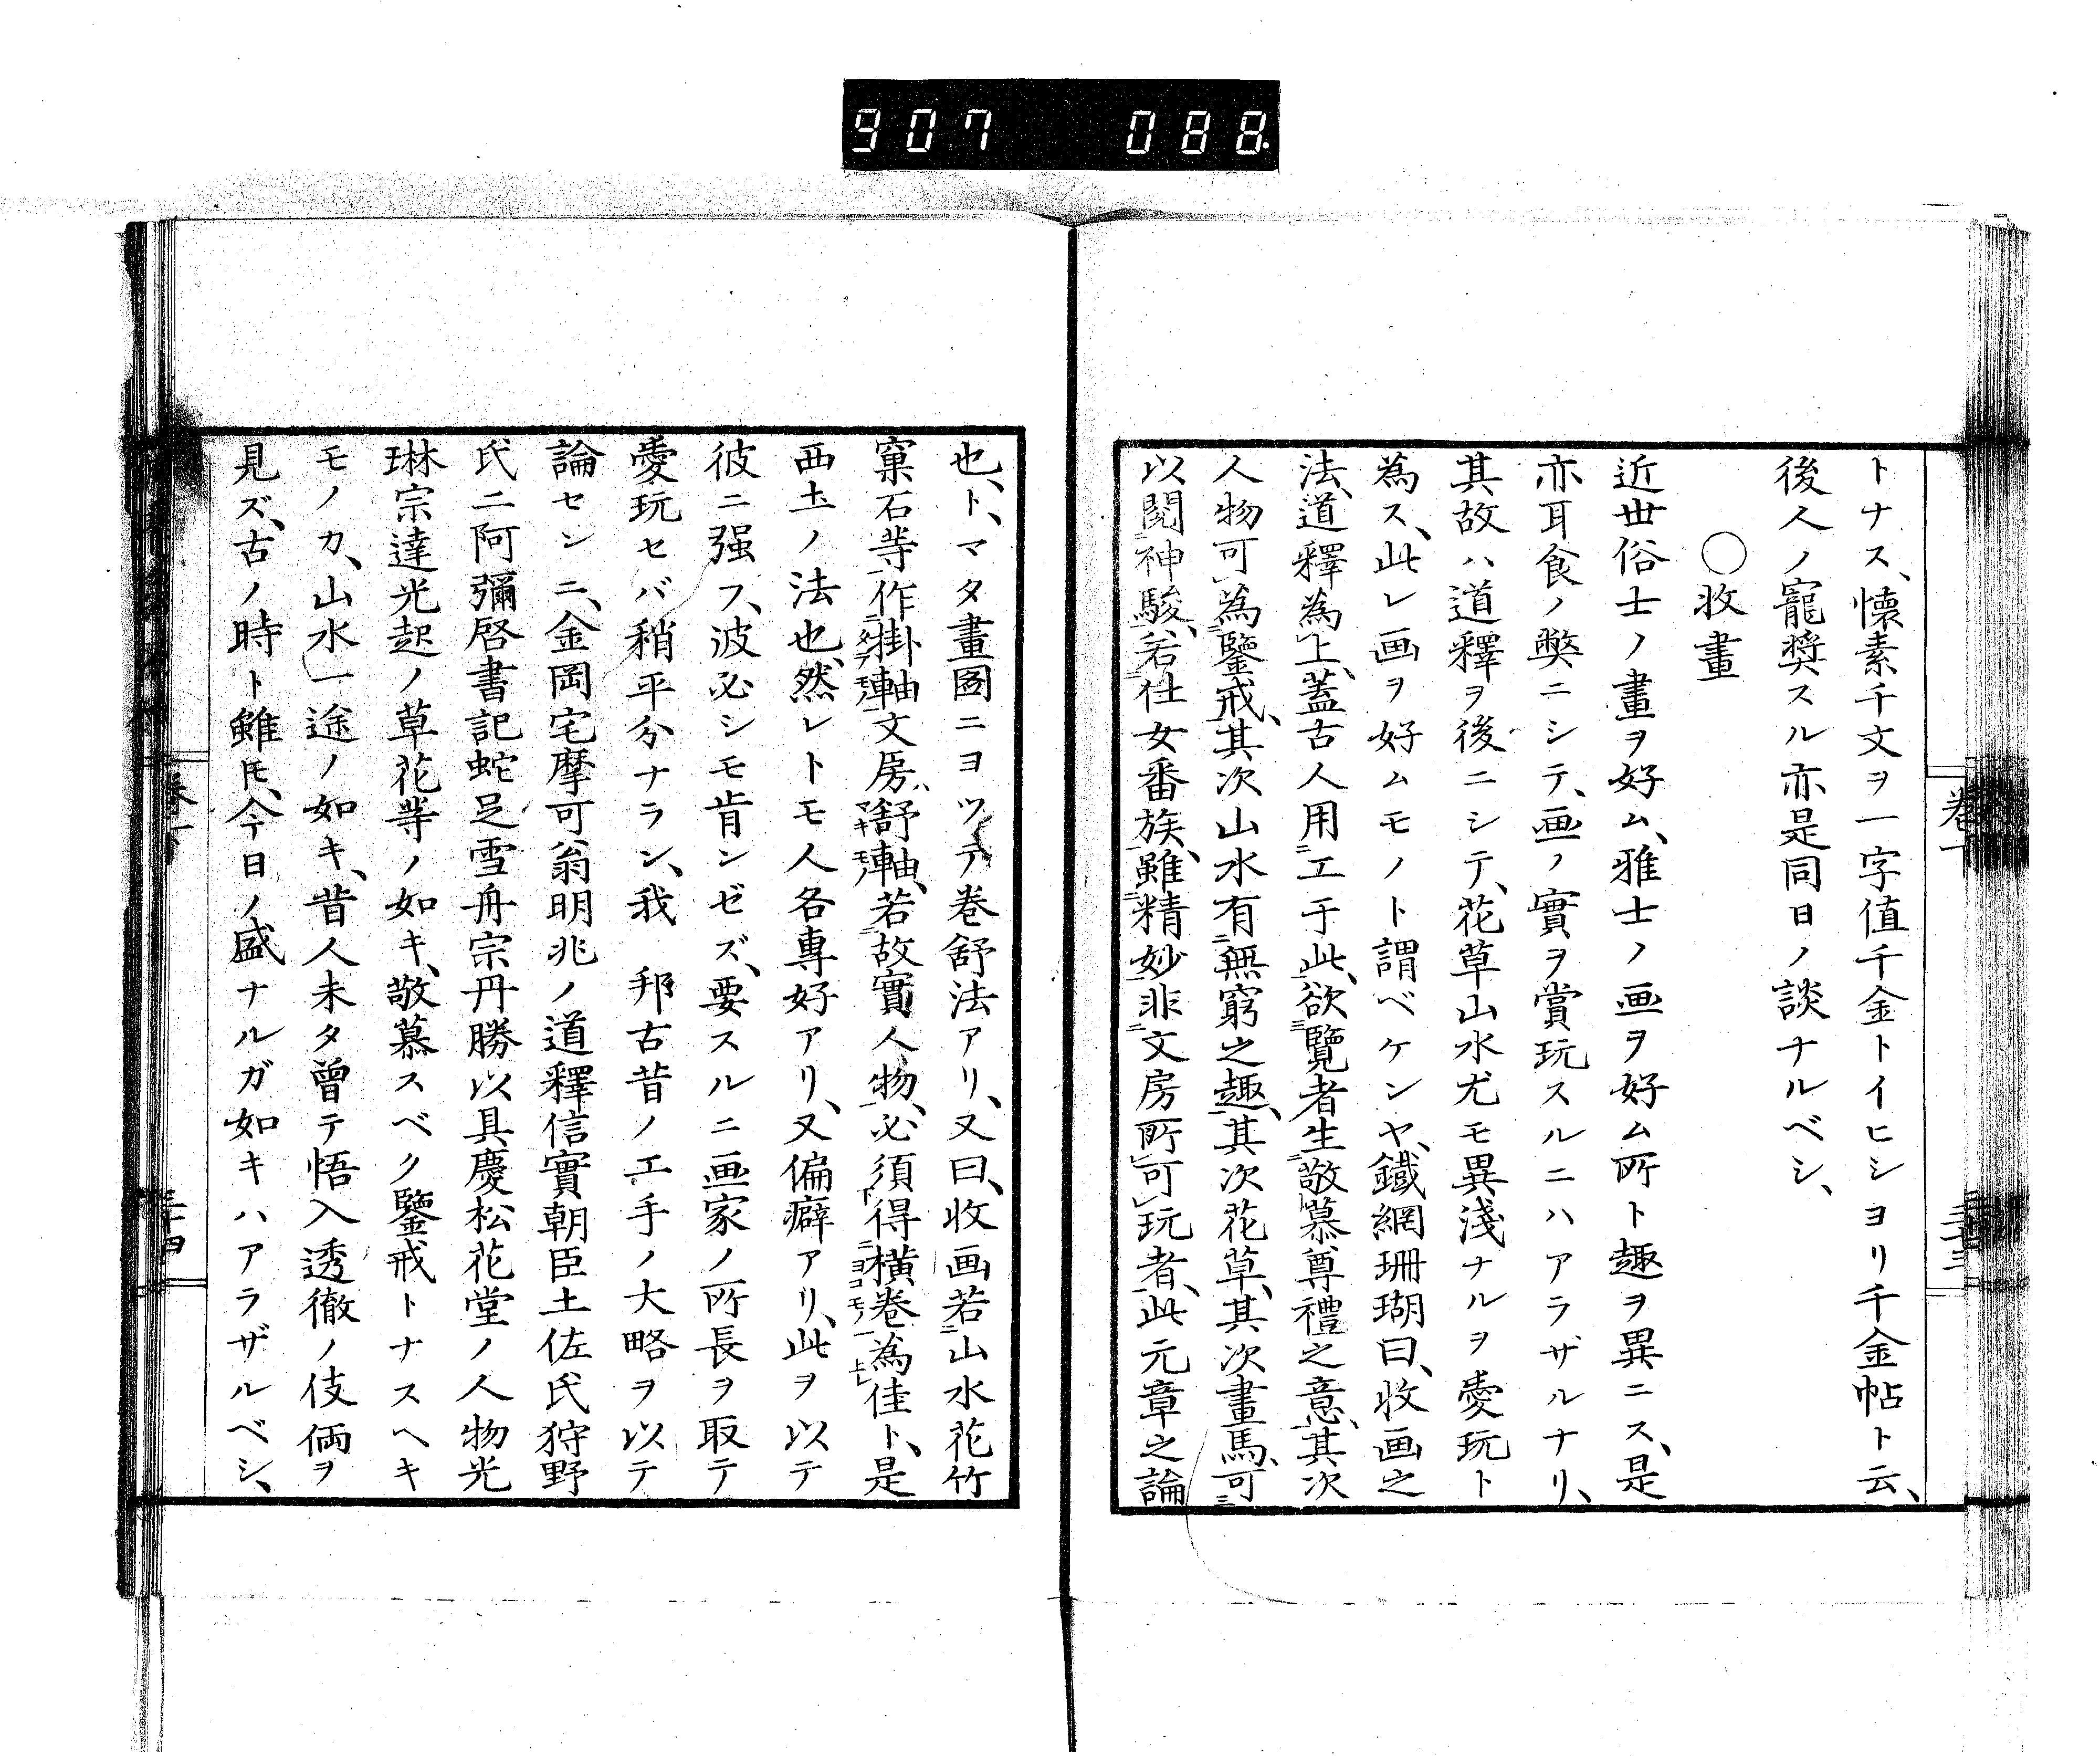 907 088
トナス、懐素千文ヲ一字値千金トイヒシヨリ千金帖ト云、
後人ノ寵奬スル亦是同日ノ談ナルベシ、
○收畫
近世俗士ノ畫ヲ好ム、雅士ノ画ヲ好ム所ト趣ヲ異ニス、是
亦耳食ノ弊ニシテ、画ノ實ヲ賞玩スルニハアラザルナリ、
其故ハ道釋ヲ後ニシテ、花草山水尤モ異淺ナルヲ愛玩ト
為ス、此レ画ヲ好ムモノト謂ベケンヤ、鐵網珊瑚曰、收画之
法、道釋為上、蓋古人用工于此、欲覽者生敬慕尊禮之意、其次
人物可為鑒戒、其次山水有無窮之趣、其次花草、其次畫馬、可
以閲神駿、若仕女番族、雖精妙非文房所可玩者、此元章之論
也、ト、マタ畫圖ニヨツテ卷舒法アリ、又曰、收画若山水花竹
窠石等作掛軸文房舒軸、若故實人物、必須得横卷為佳ト、是
西土ノ法也、然レトモ人各專好アリ、又偏癖アリ、此ヲ以テ
彼ニ强フ、波必シモ肯ンゼズ、要スルニ画家ノ所長ヲ取テ
愛玩セバ稍平分ナラン、我 邦古昔ノ工手ノ大略ヲ以テ
論センニ、金岡宅摩可翁明兆ノ道釋信實朝臣土佐氏狩野
氏ニ阿彌啓書記蛇足雪舟宗丹勝以具慶松花堂ノ人物光
琳宗達光起ノ草花等ノ如キ、敬慕スベク鑒戒トナスヘキ
モノカ、山水一途ノ如キ、昔人未タ曾テ悟入透徹ノ伎倆ヲ
見ズ、古ノ時ト雖𪜈、今日ノ盛ナルガ如キハアラザルベシ、